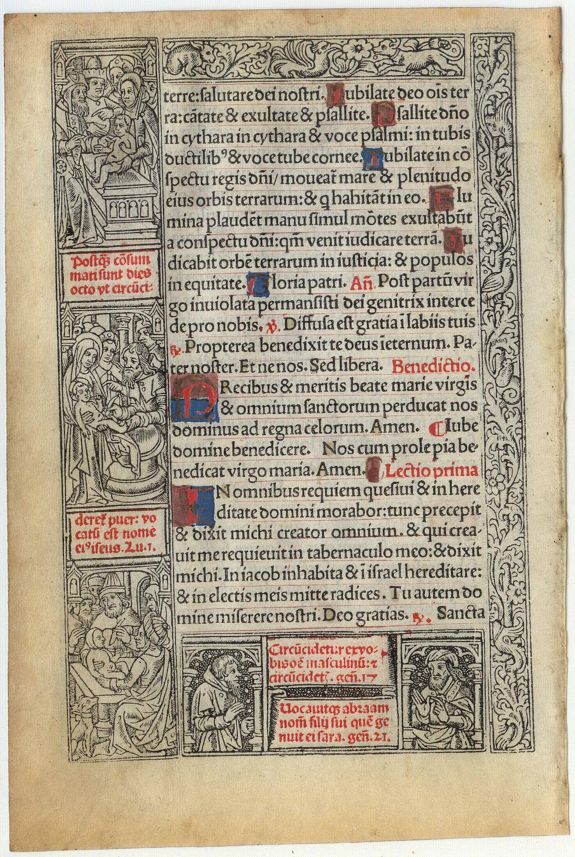 terre: salutare dei nostri. Iubilate deo oīs ter
ra: cātate & exultate & psallite. Psallite dño
in cythara in cythara & voce psalmi: in tubis
ductilib⁹ & voce tube cornee. Iubilate in cō
spectu regis dñi/ moueat̄ mare & plenitudo
eius orbis terrarum: & q̄ habitāt in eo. Flu
mina plaudēt manu simul mōtes exultabūt
a conspectu dñi: qm̄ venit iudicare terrā. Iu
dicabit orbē terrarum in iusticia: & populos
in equitate. Gloria patri. Añ. Post partū vir
go inuiolata permansisti dei genitrix interce
de pro nobis. ℣. Diffusa est gratia ī labiis tuis
℟. Propterea benedixit te deus ineternum. Pa-
ter noster. Et ne nos. Sed libera. Benedictio.
PRecibus & meritis beate marie virgīs
& omnium sanctorum perducat nos
dominus ad regna celorum. Amen. ¶ Iube
domine benedicere. Nos cum prole pia be-
nedicat virgo maria. Amen. Lectio prima
IN omnibus requiem quesiui & in here
ditate domini morabor: tunc precepit
& dixit michi creator omnium. & qui crea-
uit me requieuit in tabernaculo meo: & dixit
michi. In iacob inhabita & ī israel hereditare:
& in electis meis mitte radices. Tu autem do
mine miserere nostri. Deo gratias. ℟. Sancta
Postq̄ȝ cōsum
mati sunt dies
octo vt circūci:
deret̄ puer: vo
catū est nomē
ei⁹ iesus. Lu.2.
Circūcidetur ex vo-
bis oē masculinū: ⁊
circūcidet̄. gen̄. 17
Vocauitq̄ȝ abraam
nom̄ filij sui quē ge
nuit ei sara. gen̄. 21.